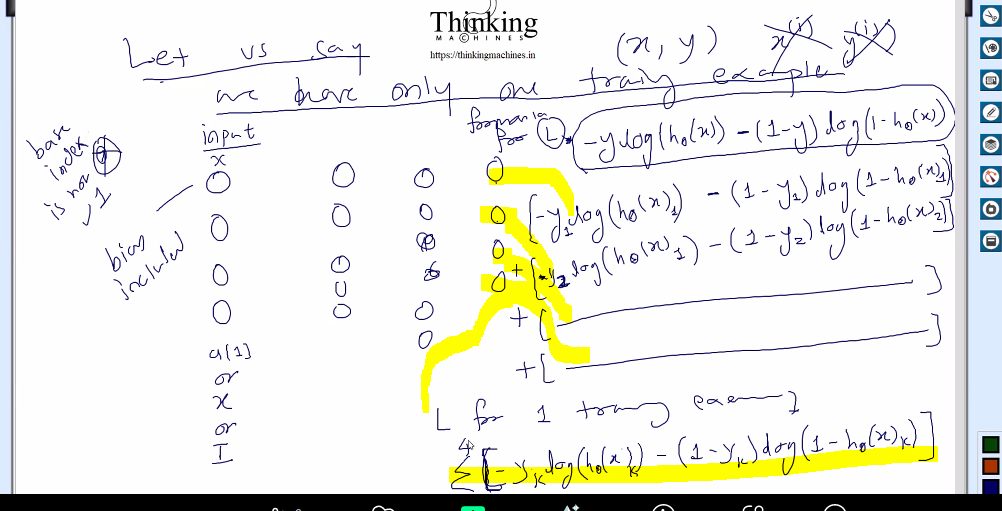 Thinking
MACHINES
https://thinkingmachines.in
Let us say (x, y) x^(i) y^(i)
we have only one trainig example
base
index
is not
1
input
x
for L
-y log(hθ(x)) - (1-y) log(1-hθ(x))
[-y₁ log(hθ(x)₁) - (1-y₁) log(1-hθ(x)₁)]
+[-y₂ log(hθ(x)₁) - (1-y₂) log(1-hθ(x)₂)]
bias
included
+[ ]
+[ ]
a[1]
or
x
or
I
L for 1 traing
4
Σ [-yₖ log(hθ(x)ₖ) - (1-yₖ) log(1-hθ(x)ₖ)]